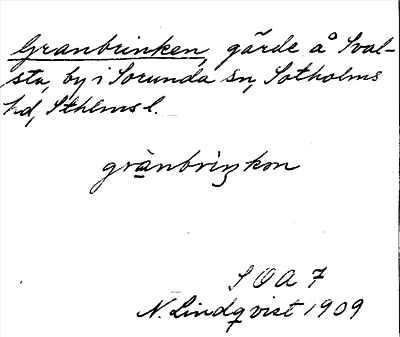 Granbrinken, gärde å Sval-
sta, by i Sorunda sn, Sotholms
hd, Sthlms l.
grànbriŋkon
S O A 7
N. Lindqvist 1909